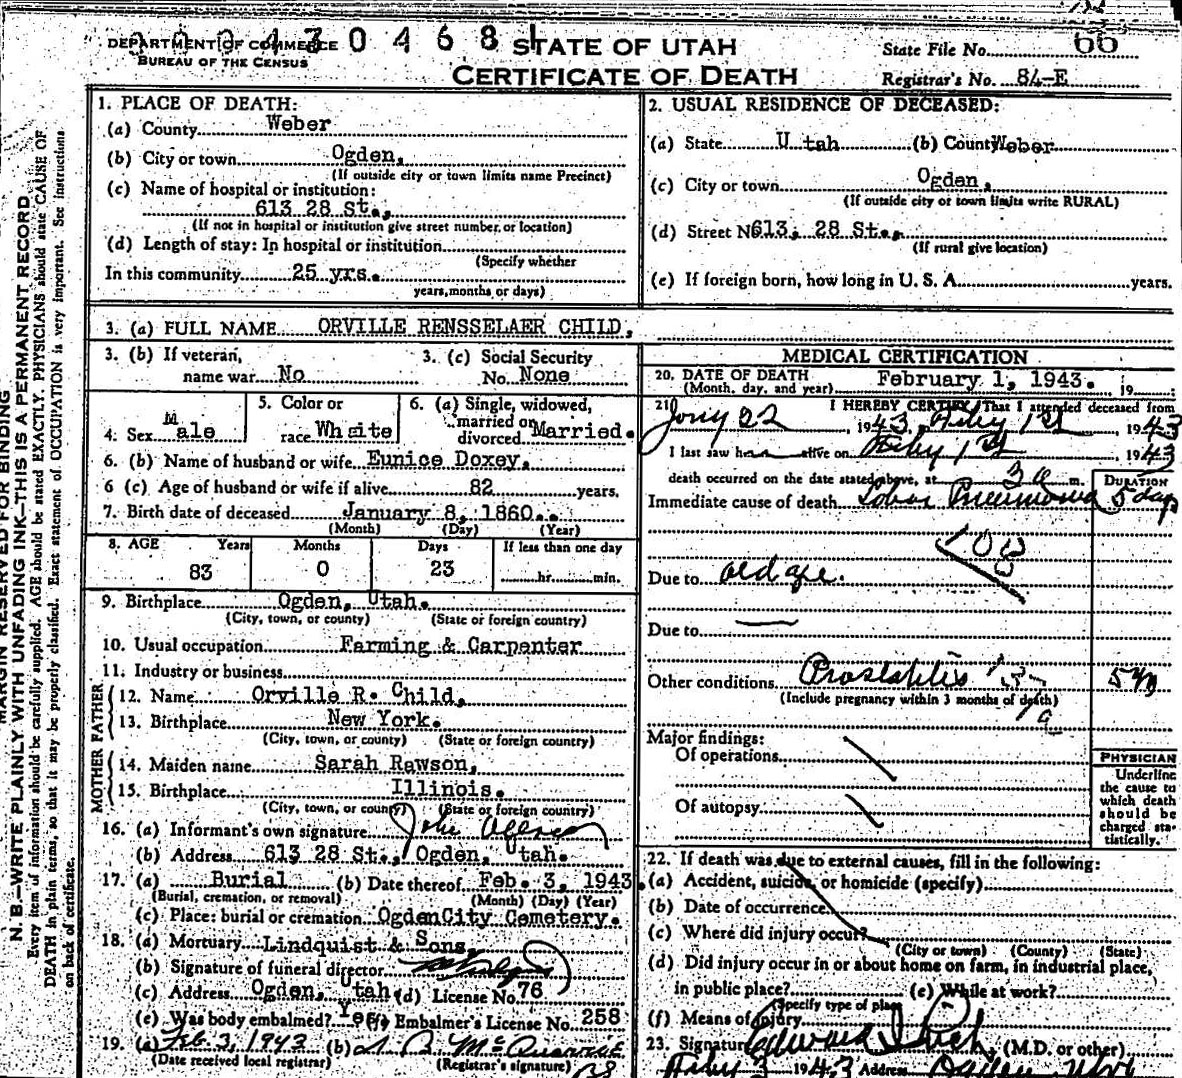 DEPARTMENT OF COMMERCE
BUREAU OF THE CENSUS
0 4 6 8 1
STATE OF UTAH
CERTIFICATE OF DEATH
State File No. 66
Registrar's No. 84-E
MARGIN RESERVED FOR BINDING
N. B.—WRITE PLAINLY WITH UNFADING INK—THIS IS A PERMANENT RECORD
Every item of information should be carefully supplied. AGE should be stated EXACTLY. PHYSICIANS should state CAUSE OF
DEATH in plain terms, so that it may be properly classified. Exact statement of OCCUPATION is very important. See instructions
on back of certificate.
1. PLACE OF DEATH:
(a) County Weber
(b) City or town Ogden,
(If outside city or town limits name Precinct)
(c) Name of hospital or institution:
613 28 St.,
(If not in hospital or institution give street number, or location)
(d) Length of stay: In hospital or institution
(Specify whether
In this community 25 yrs.
years, months or days)
2. USUAL RESIDENCE OF DECEASED:
(a) State U tah (b) County Weber
(c) City or town Ogden,
(If outside city or town limits write RURAL)
(d) Street N 613, 28 St.,
(If rural give location)
(e) If foreign born, how long in U. S. A. years.
3. (a) FULL NAME ORVILLE RENSSELAER CHILD,
3. (b) If veteran,
name war No
3. (c) Social Security
No. None
4. Sex Male
5. Color or
race White
6. (a) Single, widowed,
married or
divorced Married.
6. (b) Name of husband or wife Eunice Doxey,
6 (c) Age of husband or wife if alive 82 years.
7. Birth date of deceased January 8, 1860.
(Month) (Day) (Year)
8. AGE Years Months Days If less than one day
83 0 23 hr. min.
9. Birthplace Ogden, Utah.
(City, town, or county) (State or foreign country)
10. Usual occupation Farming & Carpenter
11. Industry or business
FATHER
12. Name Orville R. Child,
13. Birthplace New York.
(City, town, or county) (State or foreign country)
MOTHER
14. Maiden name Sarah Rawson,
15. Birthplace Illinois.
(City, town, or county) (State or foreign country)
16. (a) Informant's own signature John
(b) Address 613 28 St., Ogden, Utah.
17. (a) Burial (b) Date thereof Feb. 3, 1943.
(Burial, cremation, or removal) (Month) (Day) (Year)
(c) Place: burial or cremation Ogden City Cemetery.
18. (a) Mortuary Lindquist & Sons,
(b) Signature of funeral director
(c) Address Ogden, Utah. (d) License No. 76
(e) Was body embalmed? Yes (f) Embalmer's License No. 258
19. (a) Feb 3, 1943 (b)
(Date received local registrar) (Registrar's signature)
MEDICAL CERTIFICATION
20. DATE OF DEATH
(Month, day, and year) February 1, 1943. 19
21. I HEREBY CERTIFY, That I attended deceased from
Jany 22, 1943, Feby 1st 1943
I last saw h alive on Feby 1st 1943
death occurred on the date stated above, at 3 a m.
DURATION
Immediate cause of death Lobar Pneumonia 5 days
108
Due to old age.
Due to
Other conditions Prostatitis
(Include pregnancy within 3 months of death)
Major findings:
Of operations
Of autopsy
PHYSICIAN
Underline
the cause to
which death
should be
charged sta-
tistically.
22. If death was due to external causes, fill in the following:
(a) Accident, suicide, or homicide (specify)
(b) Date of occurrence
(c) Where did injury occur?
(City or town) (County) (State)
(d) Did injury occur in or about home on farm, in industrial place,
in public place? (e) While at work?
(Specify type of place
(f) Means of injury
23. Signature Edward I Rich, (M.D. or other)
Feby 3 1943 Address Ogden Utah